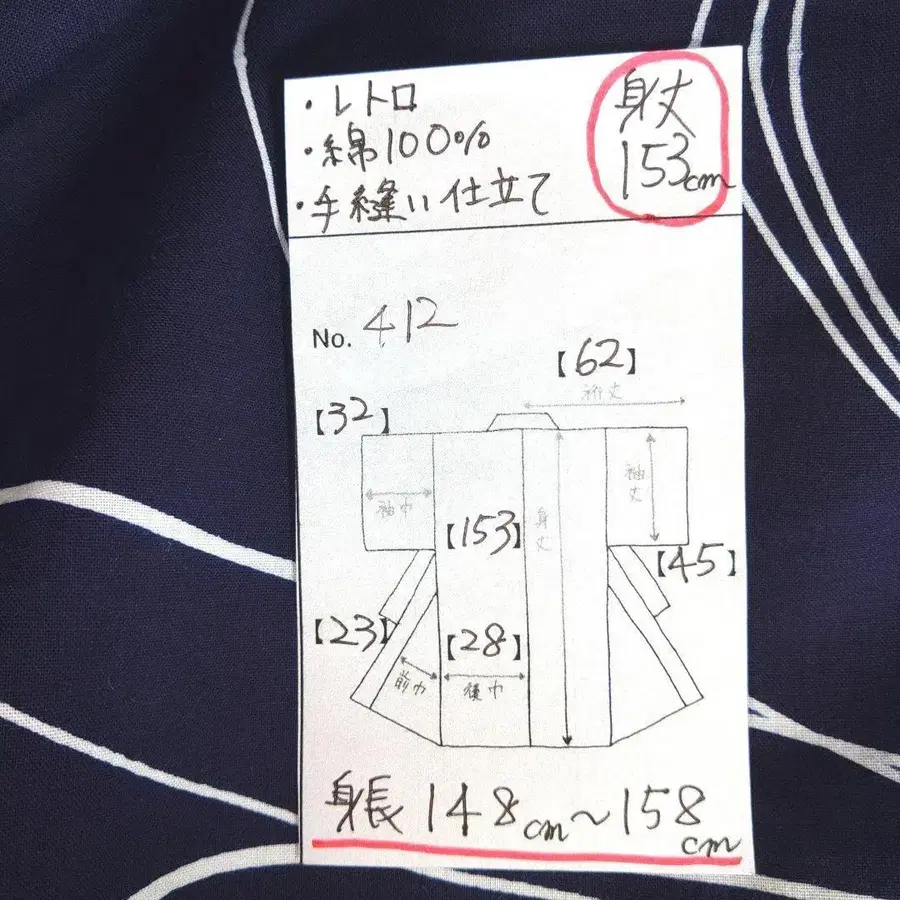 ・レトロ
・綿100%
・手縫い仕立て
身丈
153cm
No. 412
【62】
裄丈
【32】
袖巾
袖丈
【153】
身丈
【45】
【23】
【28】
前巾
後巾
身長148cm〜158cm